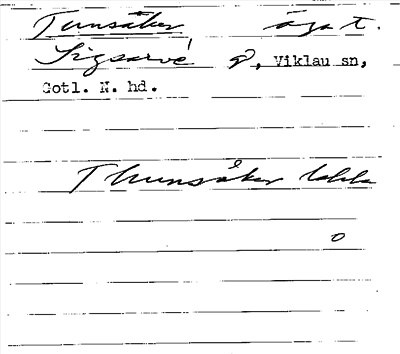 Tunsåker äga t.
Sigsarve g, Viklau sn,
Gotl. N. hd.
Thunsåker
0